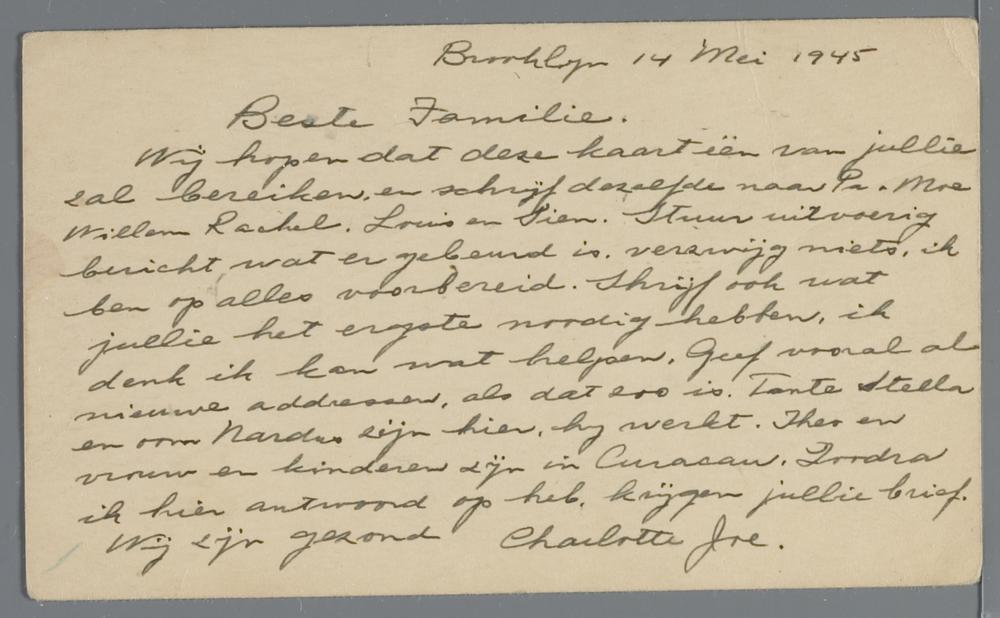 Brooklyn 14 Mei 1945
Beste Familie.
Wij hopen dat deze kaart één van jullie
zal bereiken, en schrijf dezelfde naar Pa. Moe
Willem Rachel. Louis en Sien. Stuur uitvoerig
bericht, wat er gebeurd is, verzwijg niets, ik
ben op alles voorbereid. Shrijf ook wat
jullie het ergste noodig hebben, ik
denk ik kan wat helpen. Geef vooral al
nieuwe addressen, als dat zoo is. Tante Stella
en oom Nardus zijn hier, hy werkt. Theo en
vrouw en kinderen zijn in Curacau. Zoodra
ik hier antwoord op heb, krijgen jullie brief.
Wij zijn gezond Charlotte Joe.